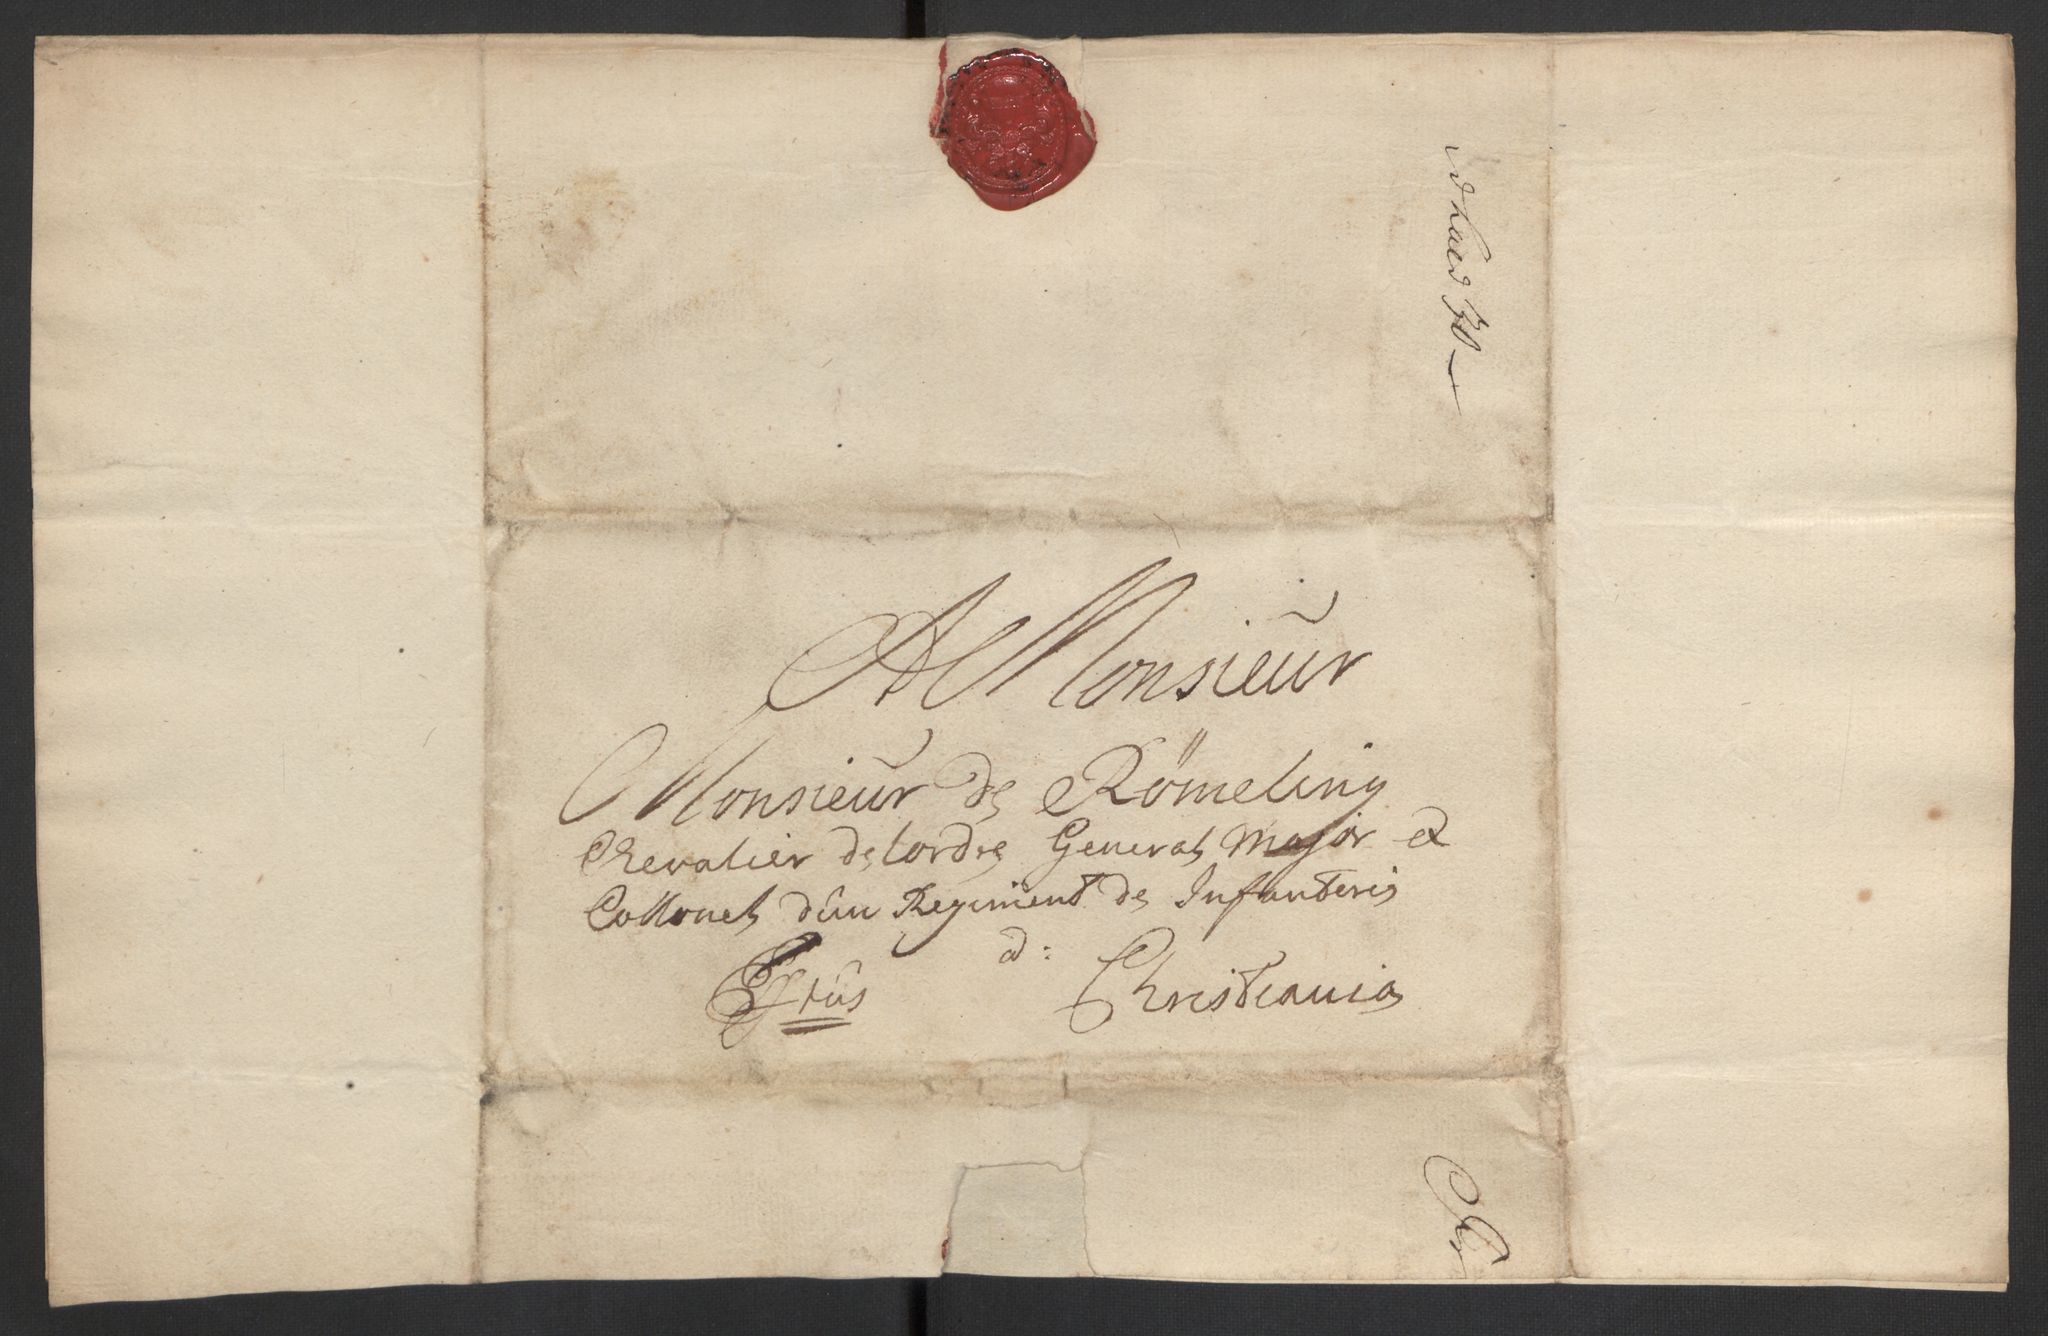 A Monsieur
Monsieur de Römeling
Chevalier de lordre General Major et
Collonel d'un Regiment de Infanterie
a:
Christiania